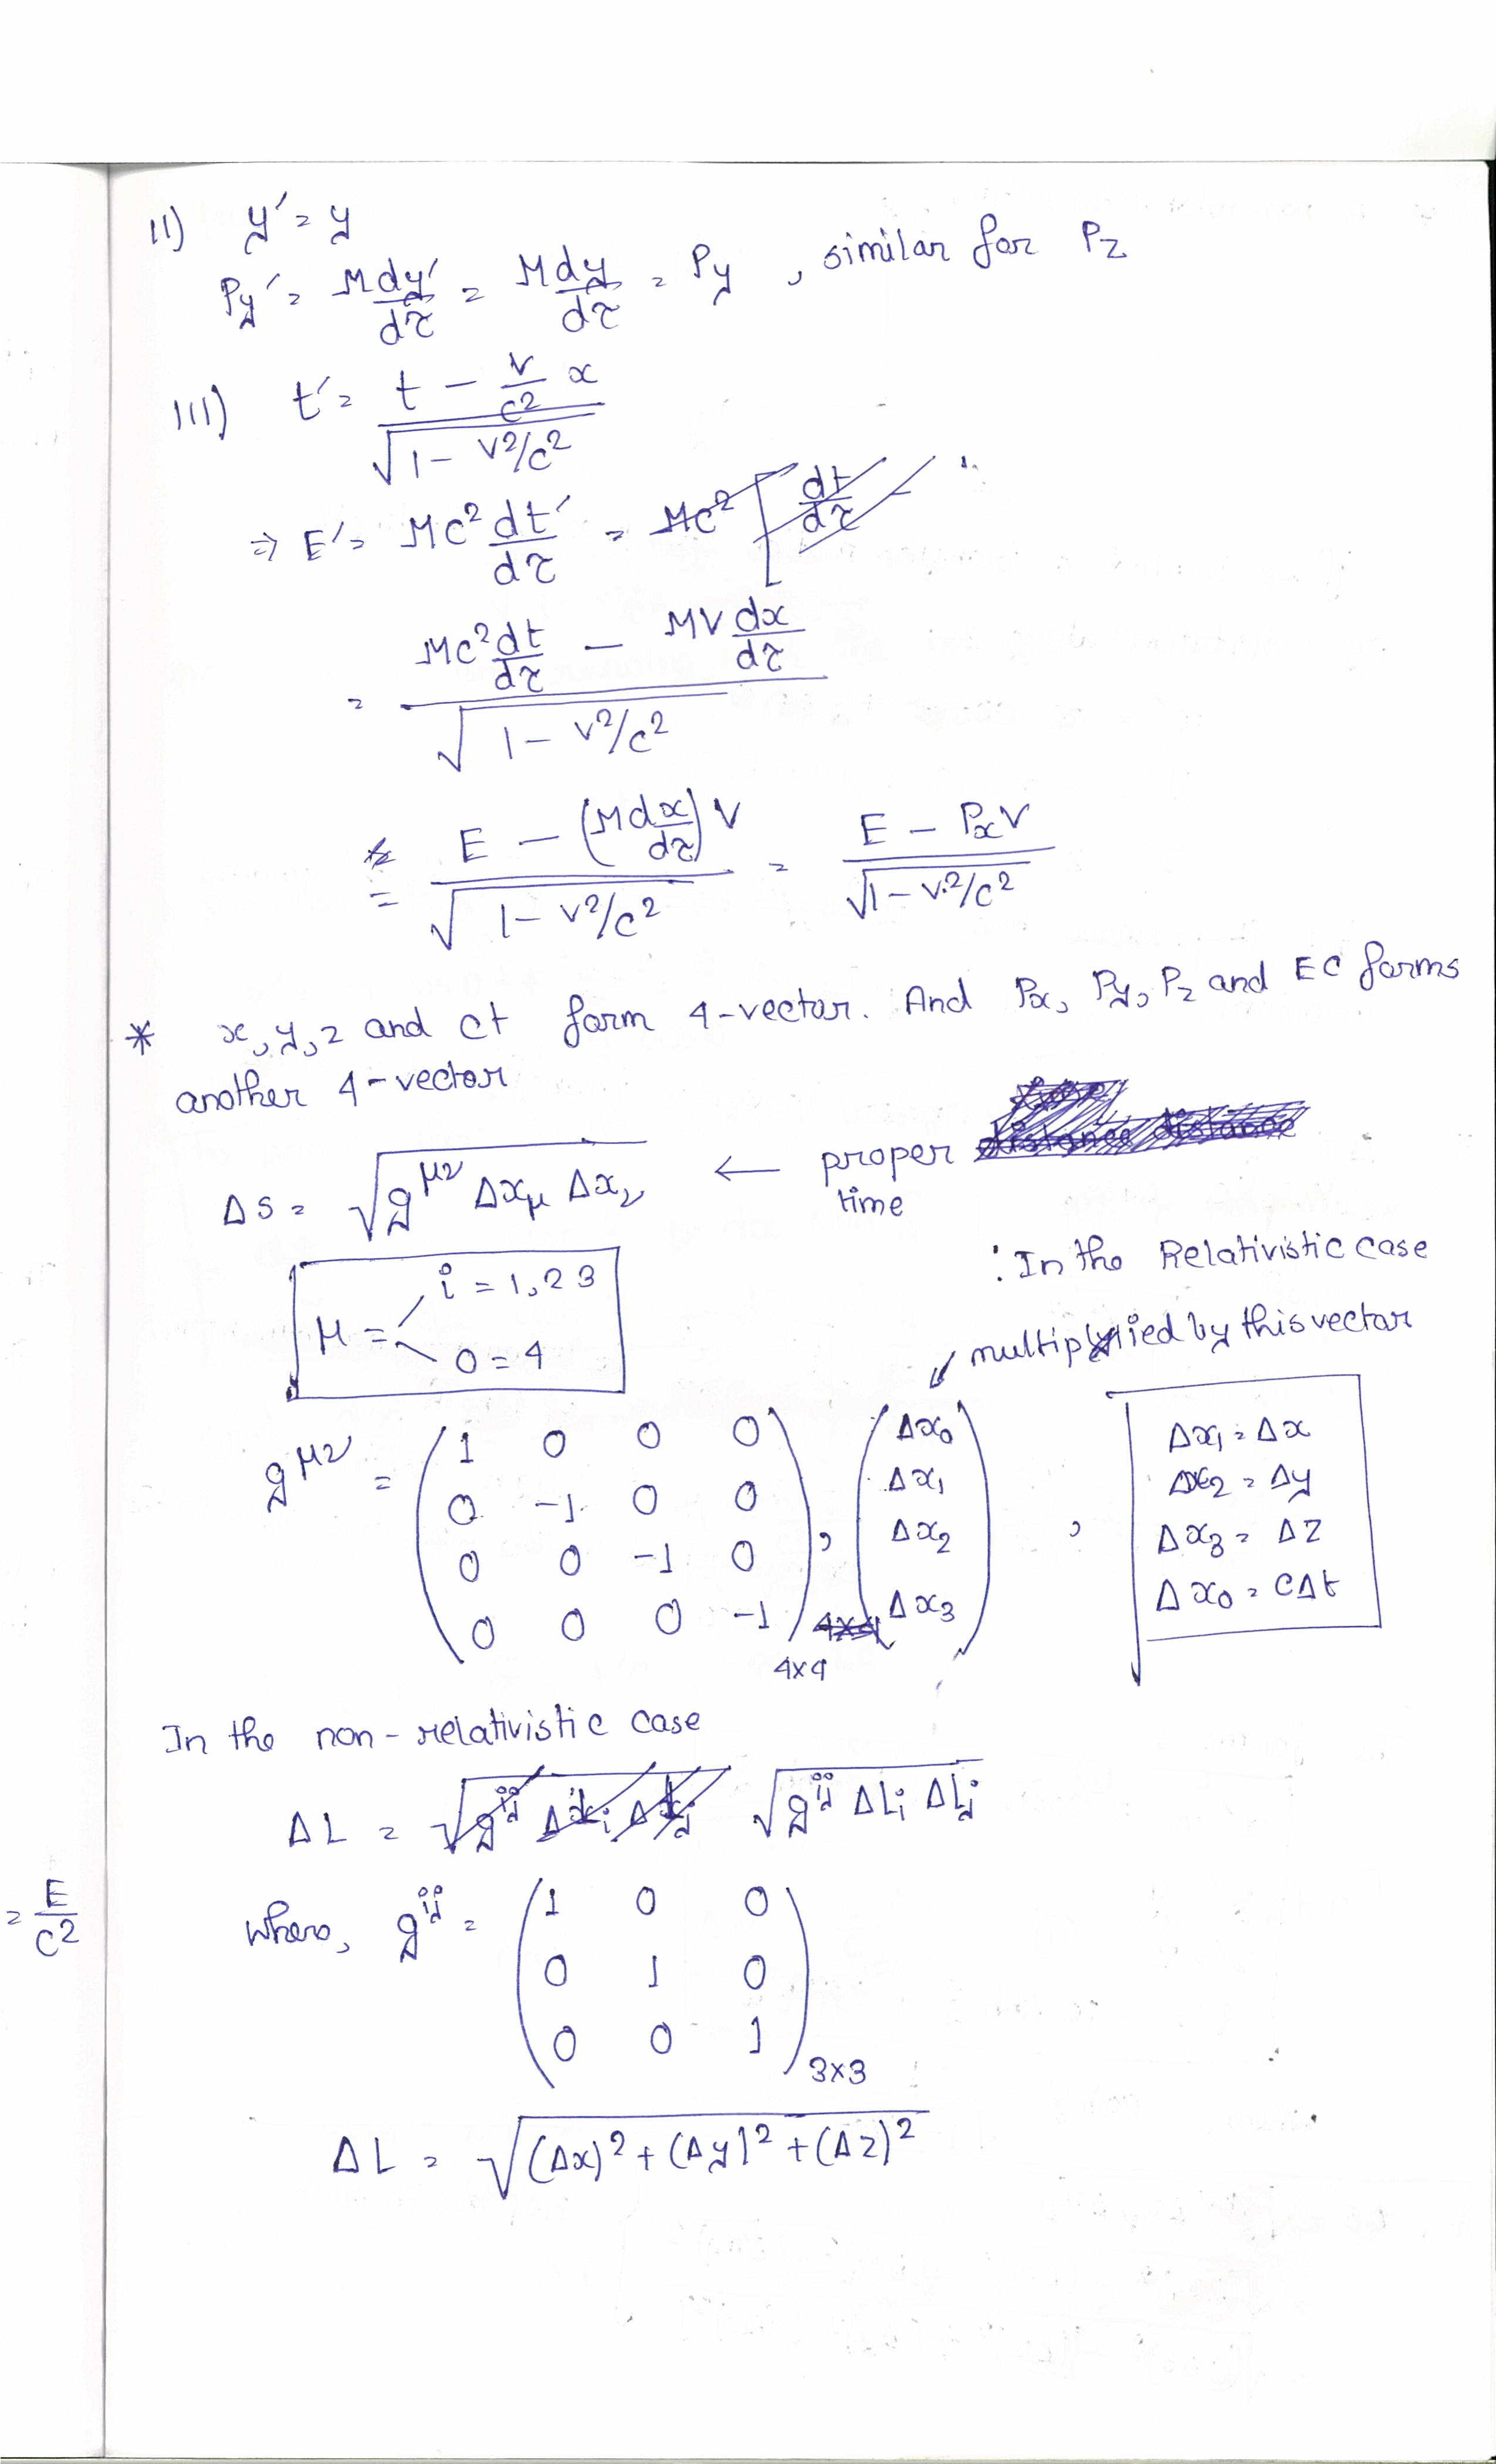 11) y′ = y
Py′ = M dy′/dτ = M dy/dτ = Py , similar for Pz
111) t′ = (t − v/c² x) / √(1 − v²/c²)
⇒ E′ = Mc² dt′/dτ = Mc² [ dt/dτ −
= (Mc² dt/dτ − MV dx/dτ) / √(1 − v²/c²)
= (E − (M dx/dτ) V) / √(1 − v²/c²) = (E − PxV) / √(1 − v²/c²)
* x, y, z and ct form 4-vector. And Px, Py, Pz and EC forms
another 4-vector
ΔS = √(g^μν Δxμ Δxν) ← proper
time
: In the Relativistic case
μ = i = 1, 2 3
0 = 4
multiplied by this vector
g^μν = ( 1 0 0 0 ) ( Δx0 )
( 0 -1 0 0 ) ( Δx1 )
( 0 0 -1 0 ) , ( Δx2 ) ,
( 0 0 0 -1 ) 4×4 ( Δx3 )
4×4
Δx1 = Δx
Δx2 = Δy
Δx3 = ΔZ
Δx0 = CΔt
In the non-relativistic case
ΔL = √(g^ij Δxi Δxj) √(g^ij ΔLi ΔLj)
= E/C²
where, g^ij = ( 1 0 0 )
( 0 1 0 )
( 0 0 1 ) 3×3
ΔL = √((Δx)² + (Δy)² + (Δz)²)